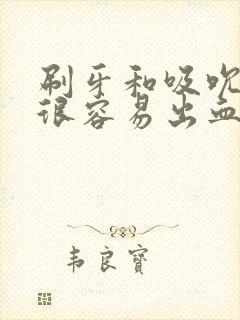 刷牙和吸吮
很容易出血
韦良宝